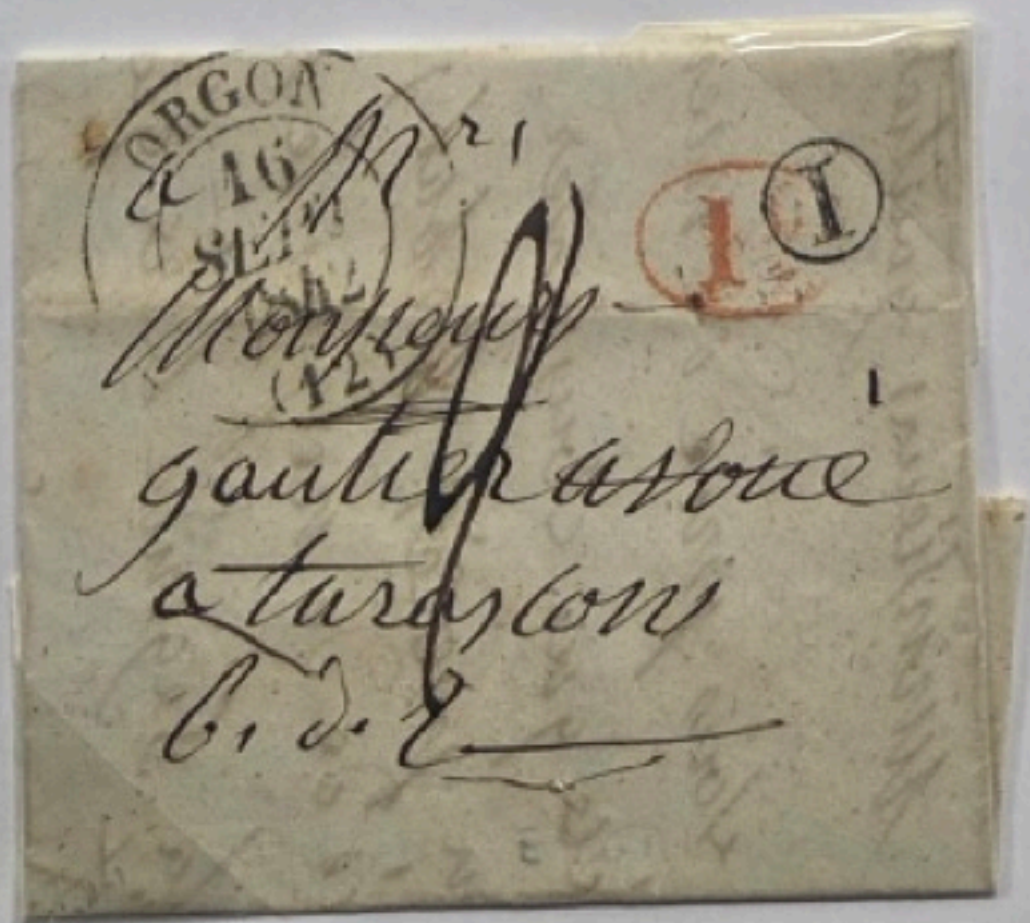 ORGON
16
SEPT
1842
(12)
1
I
à Mr
Monsieur
gautier avoué
a tarascon
b. d. R